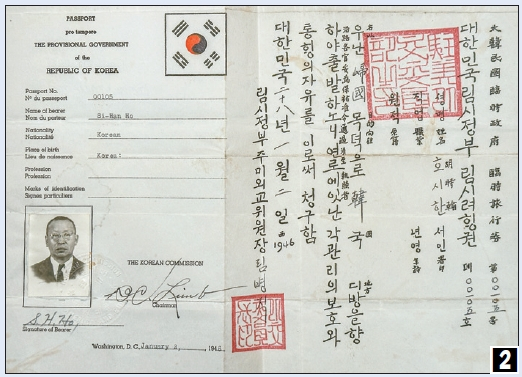 PASSPORT
pro tempore
THE PROVISIONAL GOVERNMENT
of the
REPUBLIC OF KOREA
Passport No.
No du passeport 00105
Name of bearer
Nom du porteur
Nationality
Nationalité Korean
Place of birth
Lieu de naissance Korea
Profession
Profession
Marks of identification
Signes particuliers
THE KOREAN COMMISSION
Chairman
S. H. Ho
Signature of Bearer
Washington, D.C. January 2, 1946
大韓民國臨時政府 臨時旅行券 第00105号
대한민국림시정부 림시려힝권 데00105호
성명 姓名 호시한
직명 職業
원적 原籍
서인 署印
년령 年齡
우난 歸國 목뎍으로 韓國 디방을 향
하야 출발하노니 연로에 잇난 각 관리의 보호와
통힝의 자유를 이로써 청구함
대한민국二十八年 一月 二日 1946
림시정부주미외교위원장
2